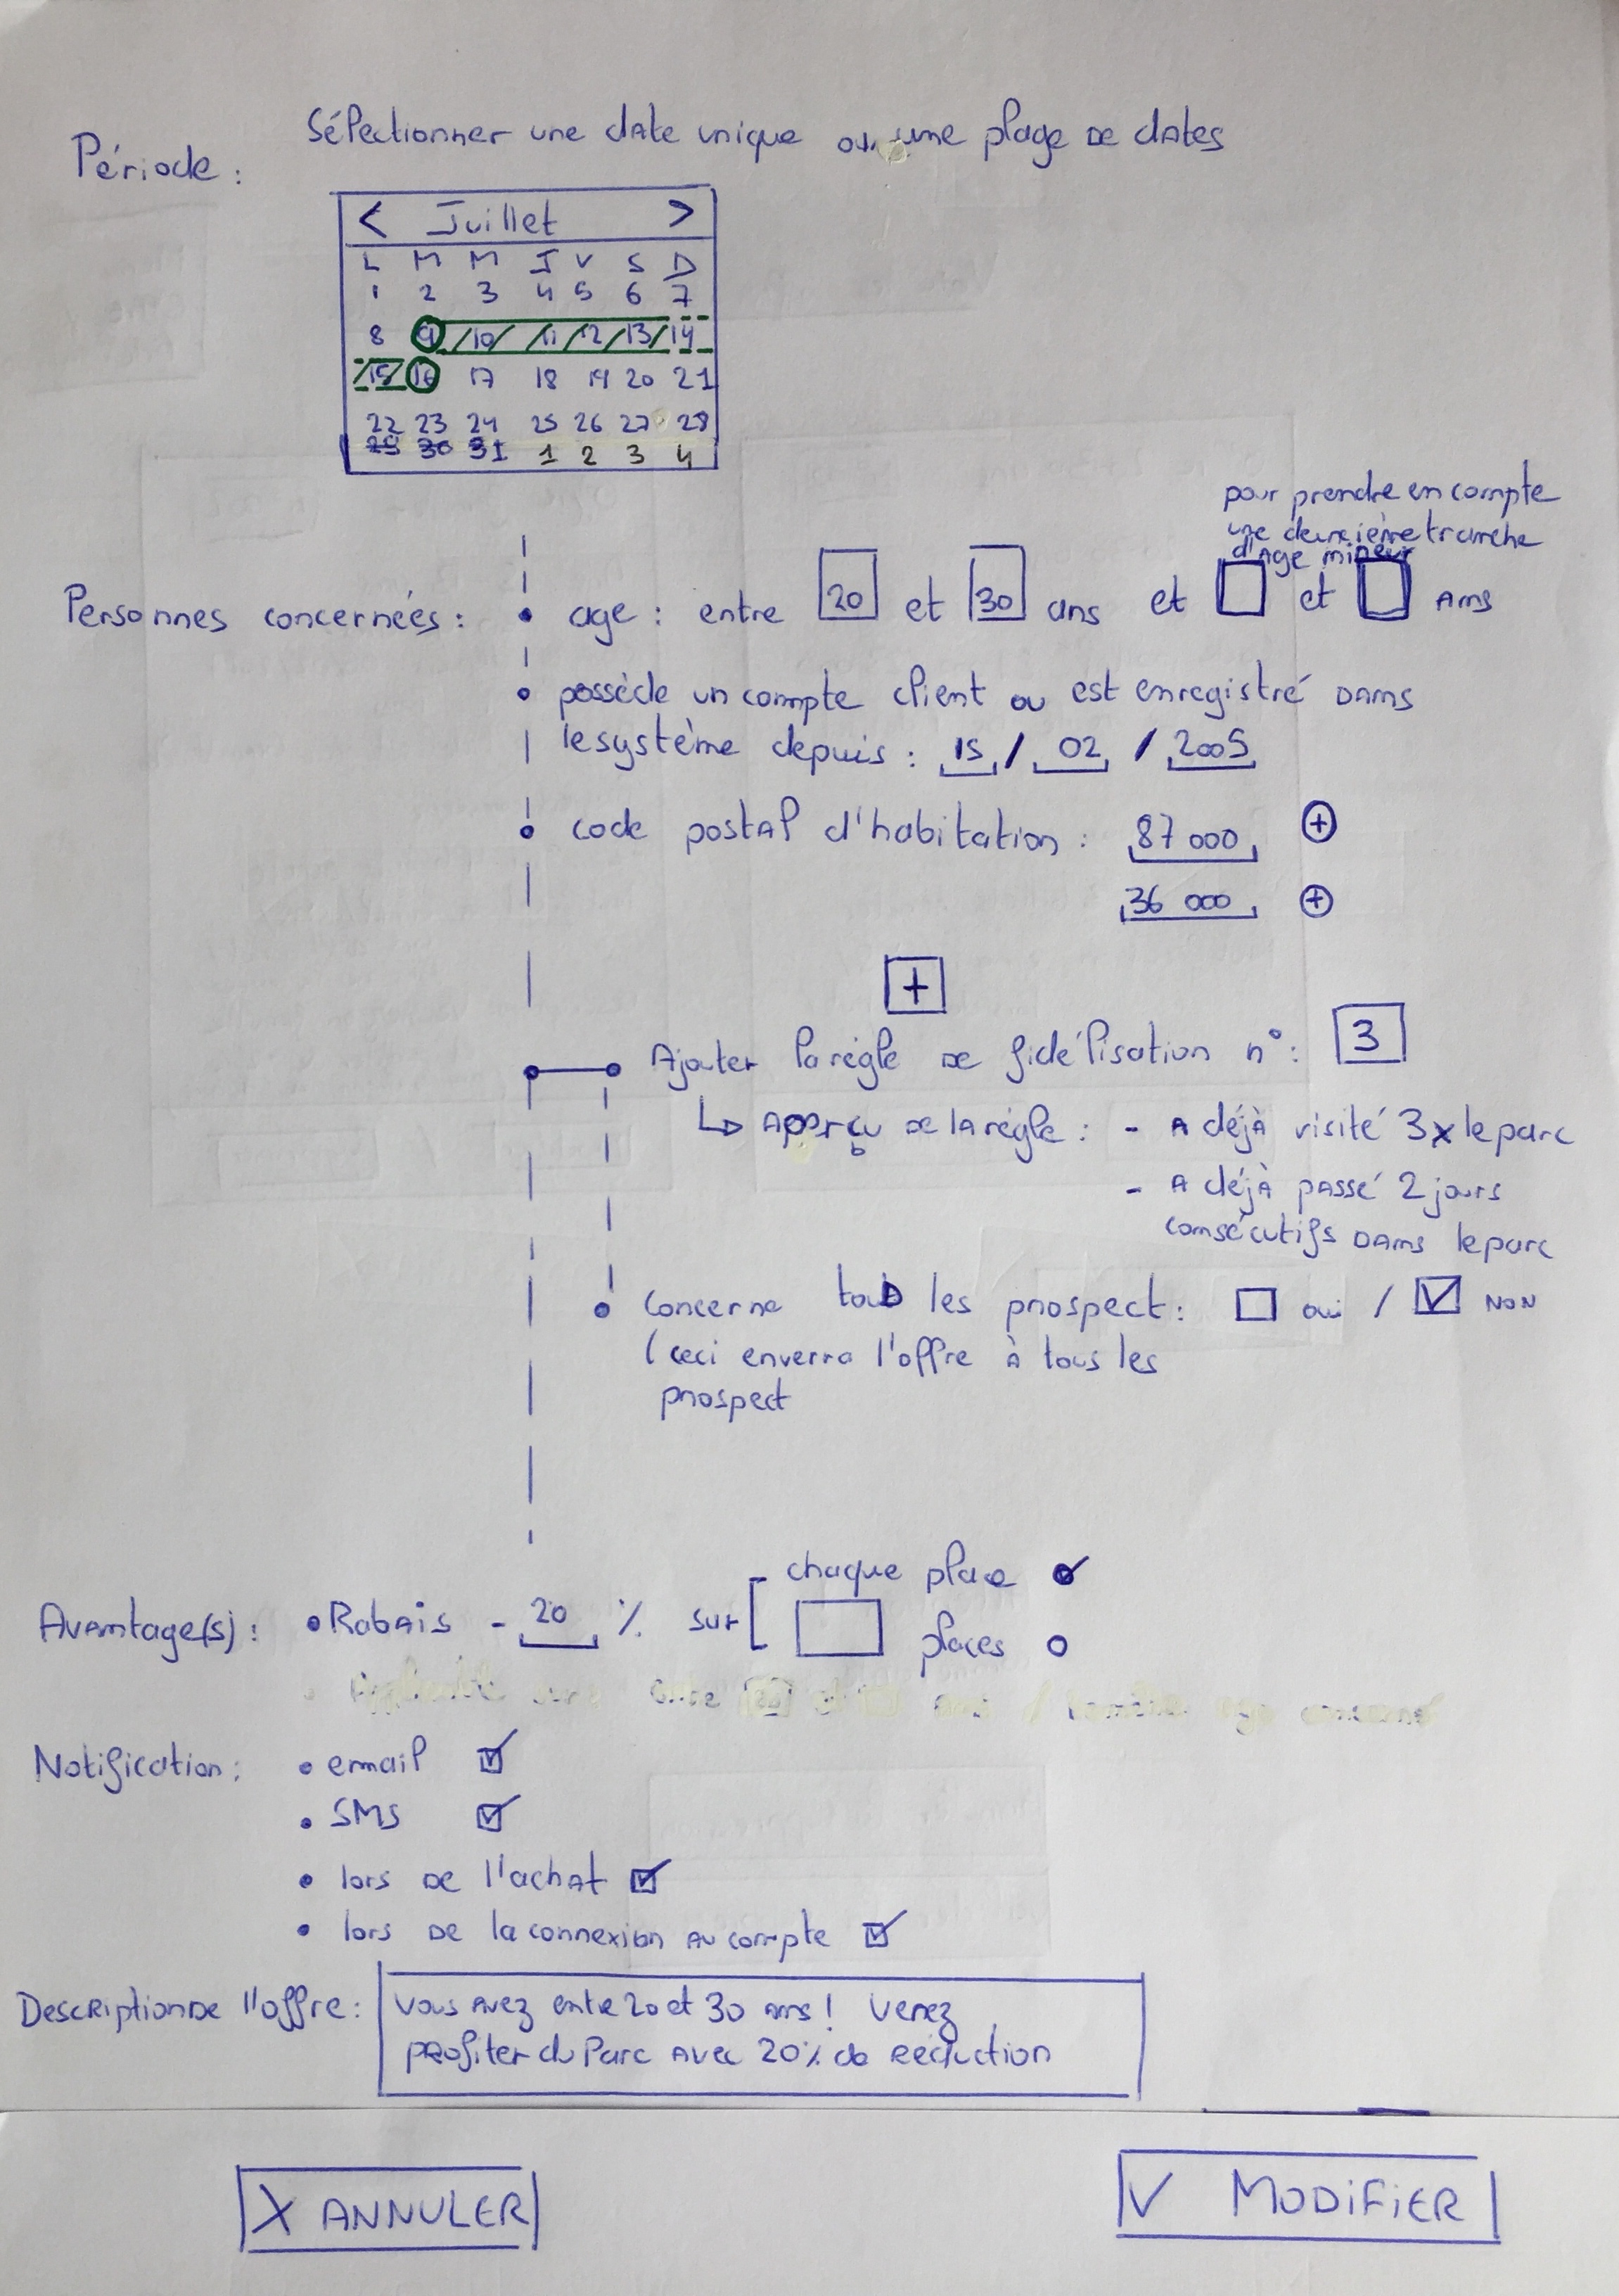 Période :
Sélectionner une date unique ou une plage de dates
< Juillet >
L M M J V S D
1 2 3 4 5 6 7
8 9 10 11 12 13 14
15 16 17 18 19 20 21
22 23 24 25 26 27 28
29 30 31 1 2 3 4
pour prendre en compte
une deuxième tranche
d'age mineur
Personnes concernées : • age : entre 20 et 30 ans et et ans
• possède un compte client ou est enregistré dans
le système depuis : 15 / 02 / 2005
• code postal d'habitation : 87 000 +
36 000 +
+
Ajouter la règle de fidélisation n° : 3
↳ Aperçu de la règle : - A déjà visité 3x le parc
- A déjà passé 2 jours
consécutifs dans le parc
• Concerne tous les prospect : oui / ☑ NON
(ceci enverra l'offre à tous les
prospect
Avantage(s) : • Rabais - 20 % sur
chaque place
places
Notification : • email ☑
• SMS ☑
• lors de l'achat ☑
• lors de la connexion au compte ☑
Description de l'offre : Vous avez entre 20 et 30 ans ! Venez
profiter du Parc avec 20% de réduction
X ANNULER
V MODIFIER